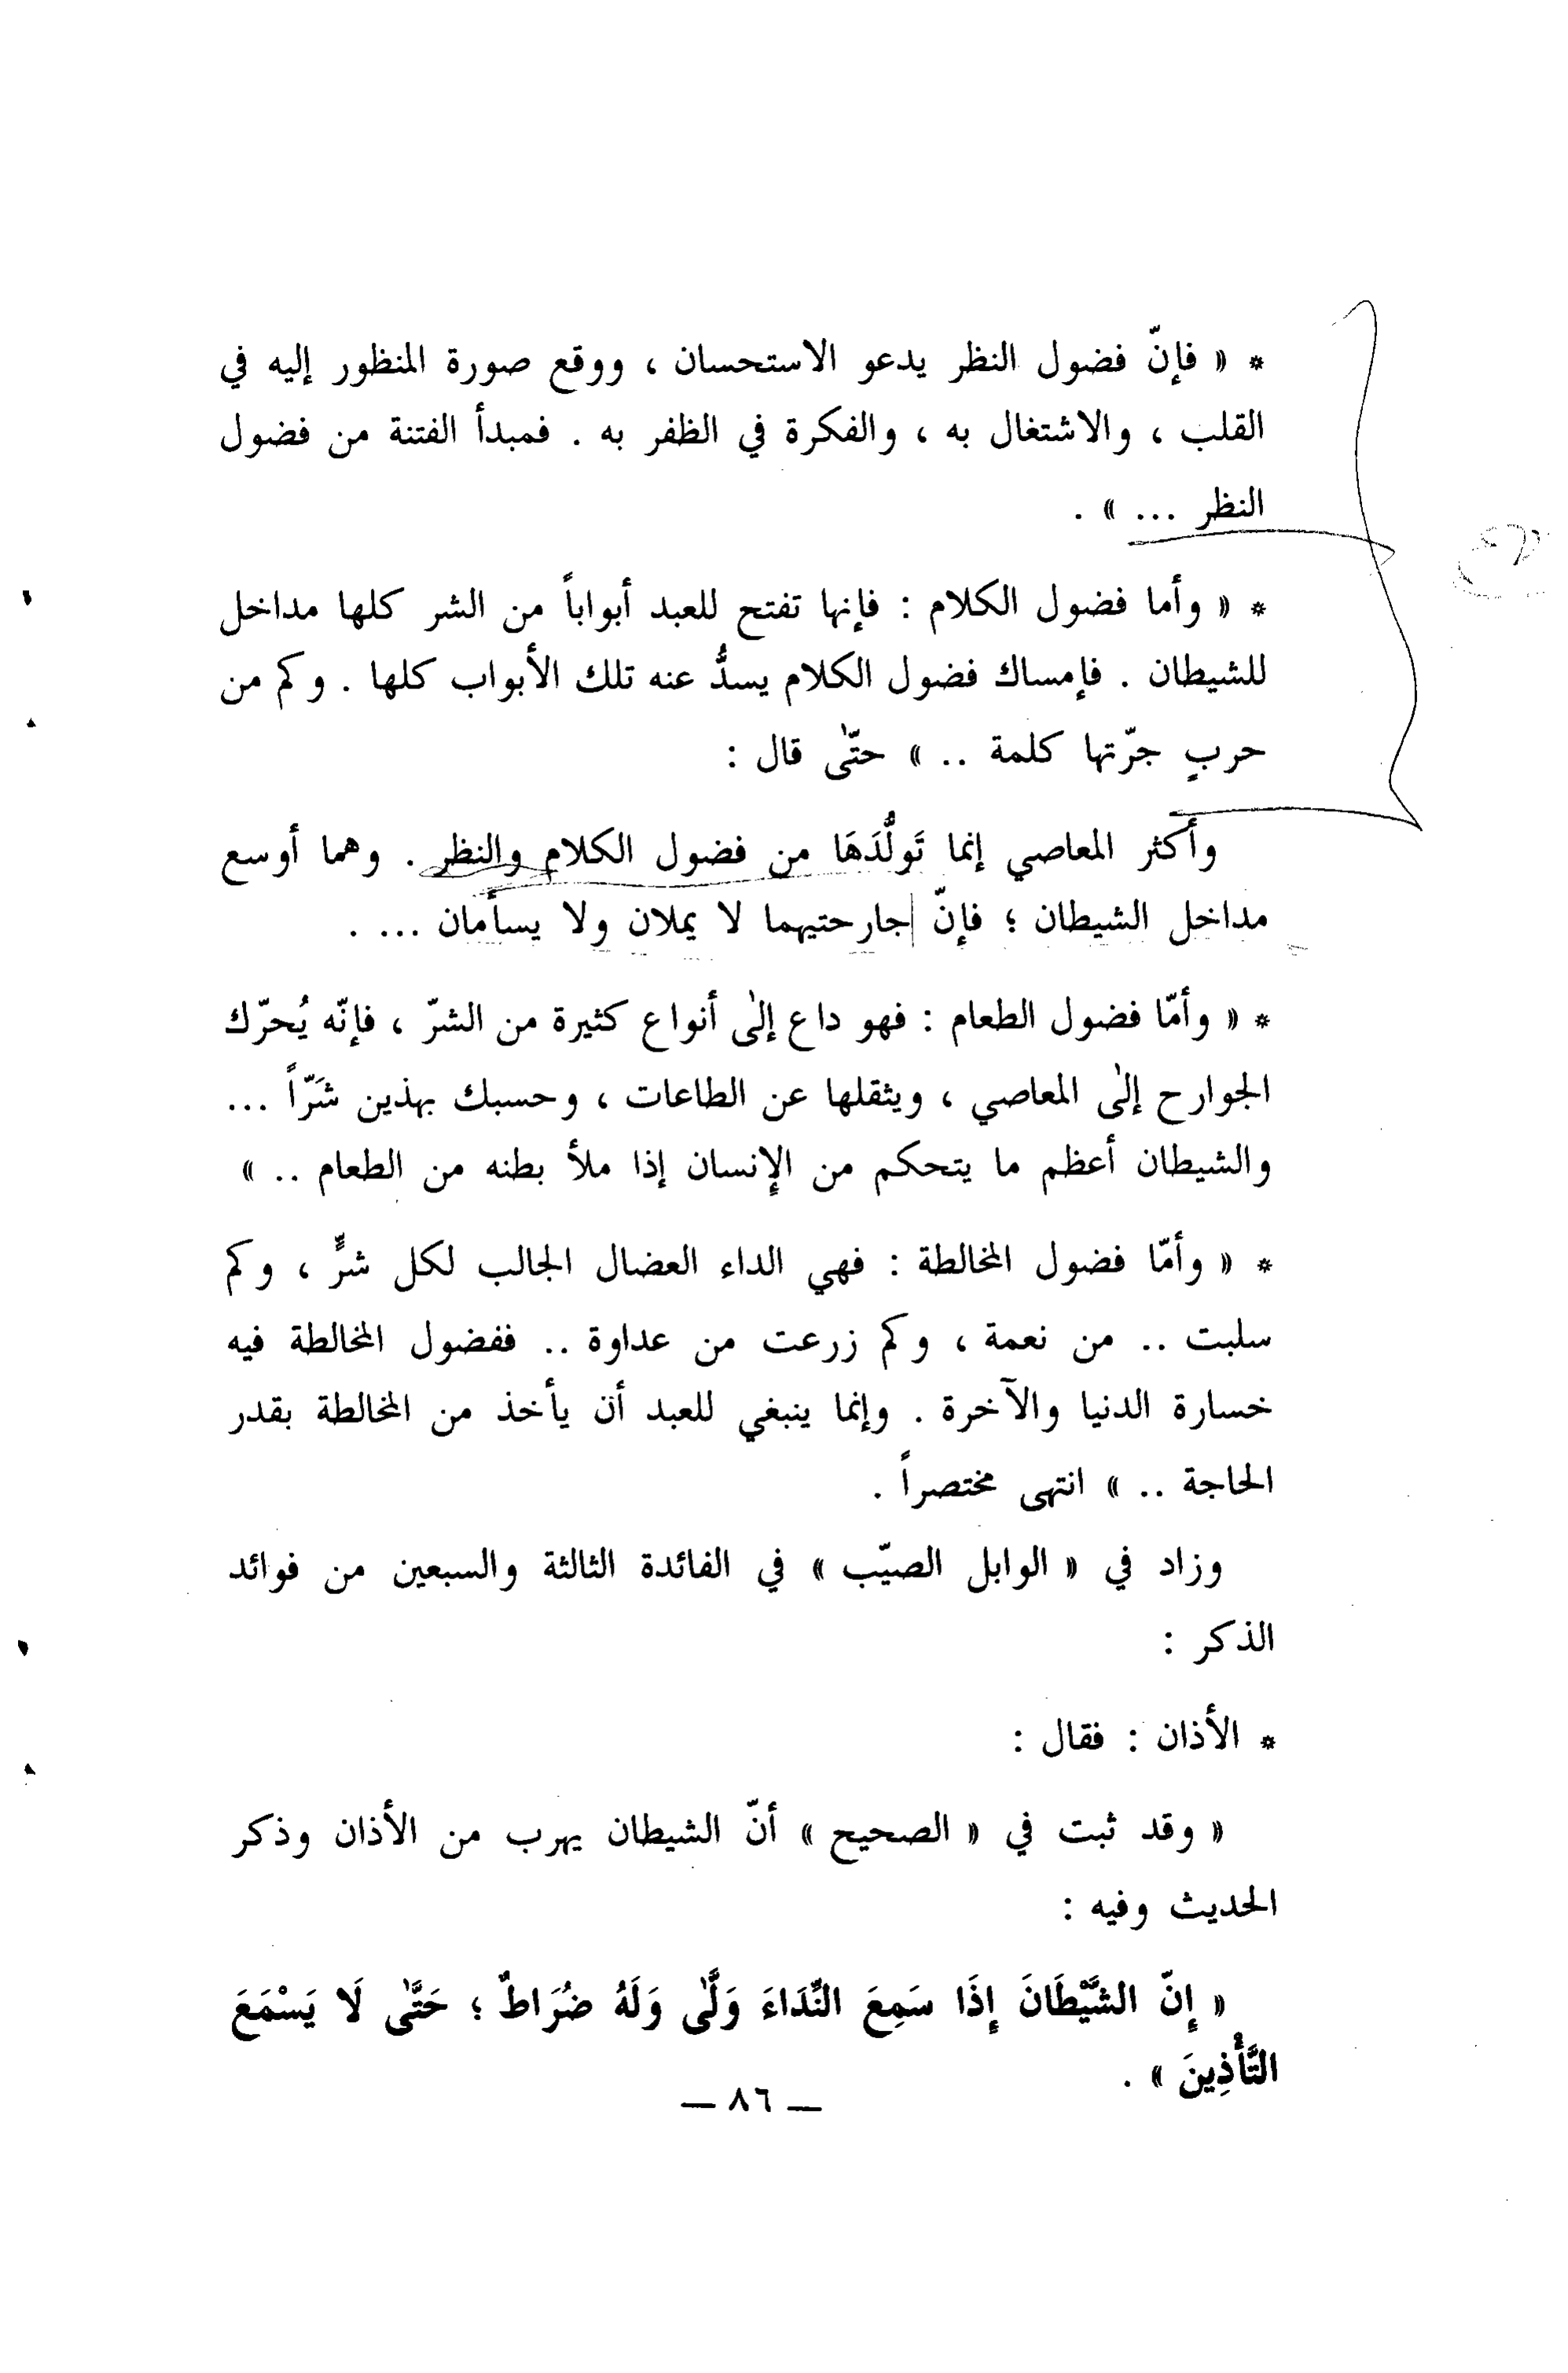 * « فإنّ فضول النظر يدعو الاستحسان ، ووقع صورة المنظور إليه في
القلب ، والاشتغال به ، والفكرة في الظفر به . فمبدأ الفتنة من فضول
النظر ... » .
* « وأما فضول الكلام : فإنها تفتح للعبد أبواباً من الشر كلها مداخل
للشيطان . فإمساك فضول الكلام يسدُّ عنه تلك الأبواب كلها . وكم من
حربٍ جرّتها كلمة .. » حتّىٰ قال :
وأكثر المعاصي إنما تَولُّدَهَا من فضول الكلام والنظر . وهما أوسع
مداخل الشيطان ؛ فإنّ جارحتيهما لا يملان ولا يسأمان ... .
* « وأمّا فضول الطعام : فهو داع إلىٰ أنواع كثيرة من الشرّ ، فإنّه يُحرّك
الجوارح إلىٰ المعاصي ، ويثقلها عن الطاعات ، وحسبك بهذين شَرّاً ...
والشيطان أعظم ما يتحكم من الإنسان إذا ملأ بطنه من الطعام .. »
* « وأمّا فضول المخالطة : فهي الداء العضال الجالب لكل شرٍّ ، وكم
سلبت .. من نعمة ، وكم زرعت من عداوة .. ففضول المخالطة فيه
خسارة الدنيا والآخرة . وإنما ينبغي للعبد أن يأخذ من المخالطة بقدر
الحاجة .. » انتهى مختصراً .
وزاد في « الوابل الصيّب » في الفائدة الثالثة والسبعين من فوائد
الذكر :
* الأذان : فقال :
« وقد ثبت في « الصحيح » أنّ الشيطان يهرب من الأذان وذكر
الحديث وفيه :
« إِنّ الشَّيْطَانَ إِذَا سَمِعَ النِّدَاءَ وَلَّىٰ وَلَهُ ضُرَاطٌ ؛ حَتَّىٰ لَا يَسْمَعَ
التَّأْذِينَ » .
— ٨٦ —